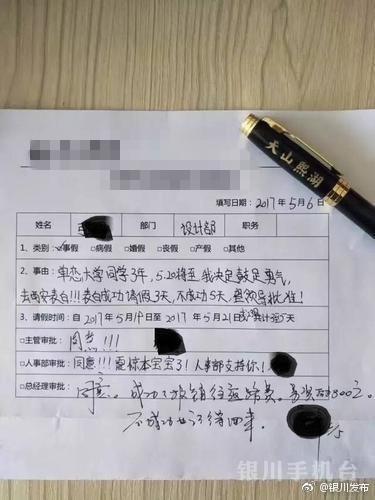 天山熙湖
填写日期：2017年5月6日
姓名 部门 设计部 职务
1、类别：☑事假 □病假 □婚假 □丧假 □产假 □其他
2、事由：单恋大学同学3年，5.20将至，我决定鼓足勇气，
去西安表白!!!表白成功请假3天，不成功5天，望领导批准！
3、请假时间：自2017年5月19日至2017年5月21日 共计 5天
□主管审批：同意!!!
□人事部审批：同意!!!震惊本宝宝了！人事部支持你！
□总经理审批：同意。成功了报销往返路费，另资助800元。
不成功也记得回来。
银川手机台
@银川发布